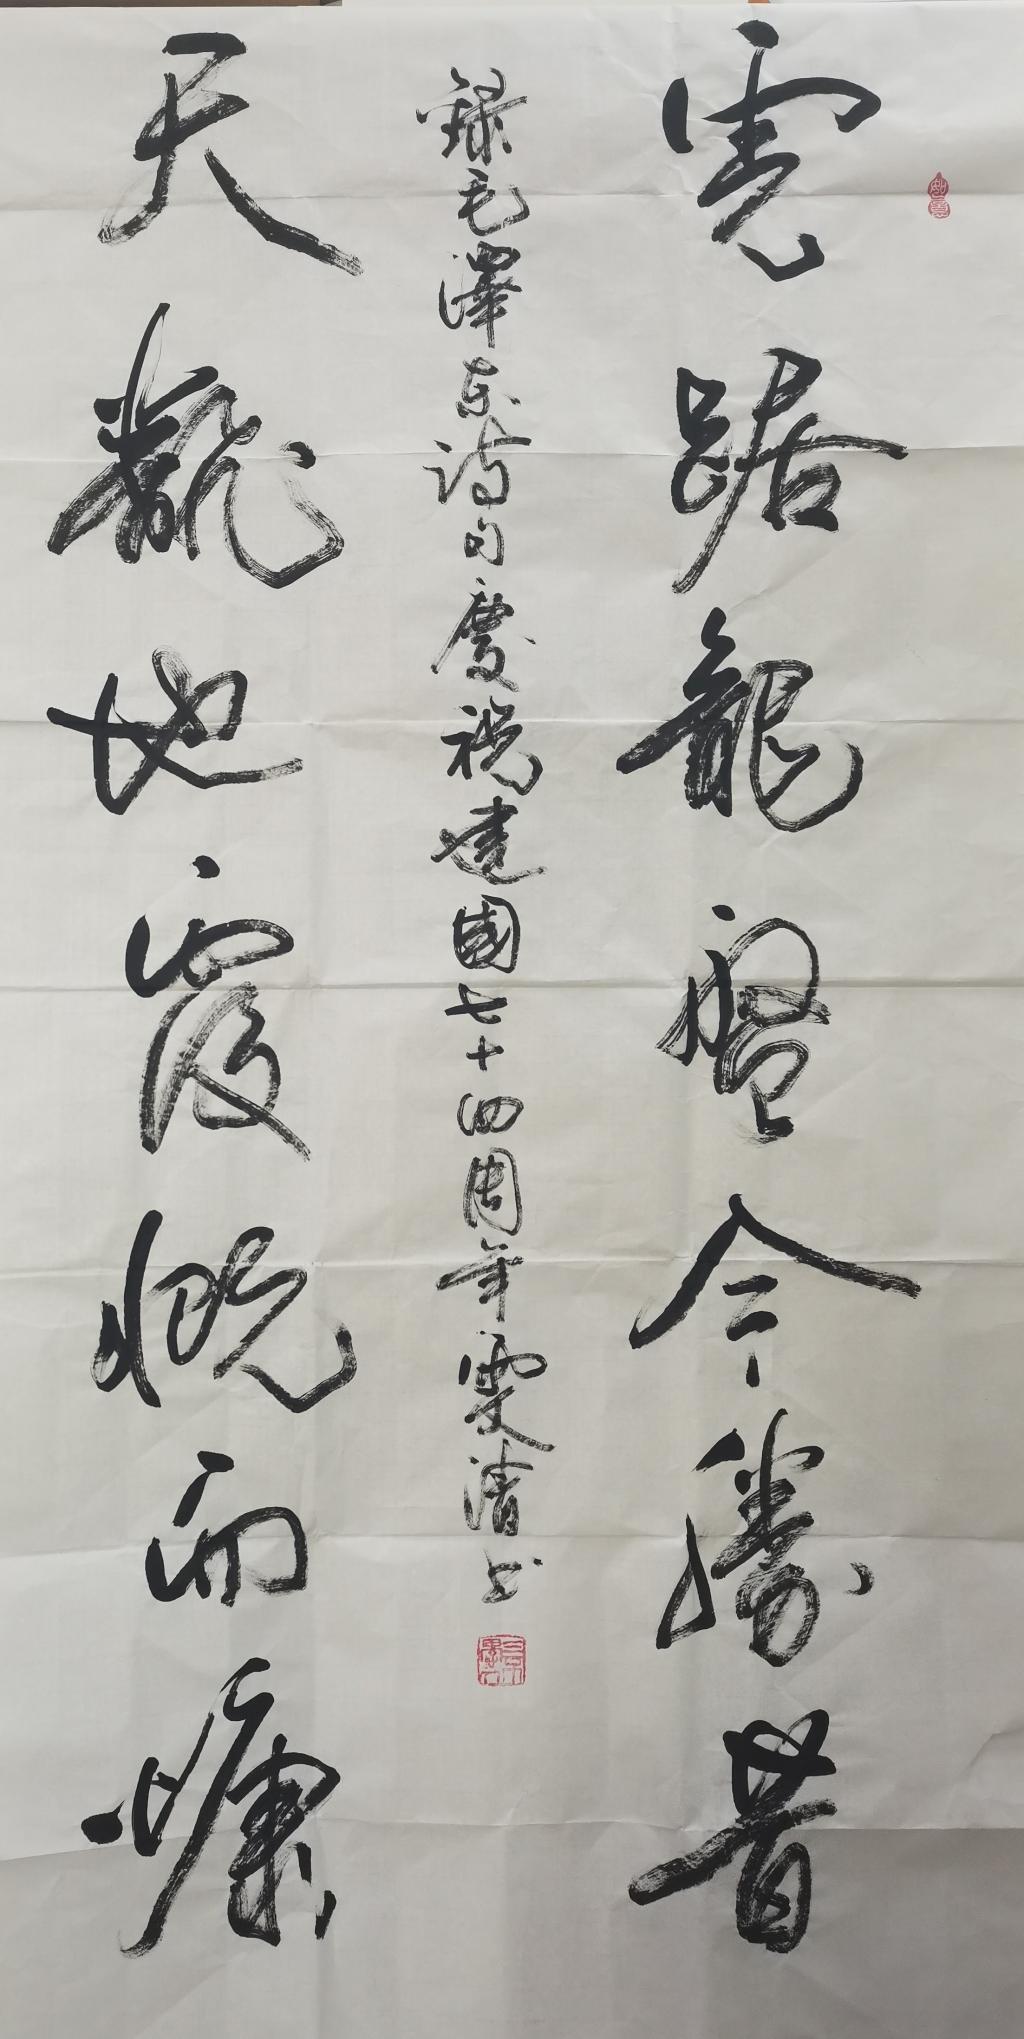 虎踞龍盤今勝昔
天翻地覆慨而慷
錄毛澤东詩句慶祝建國七十四周年雯清书